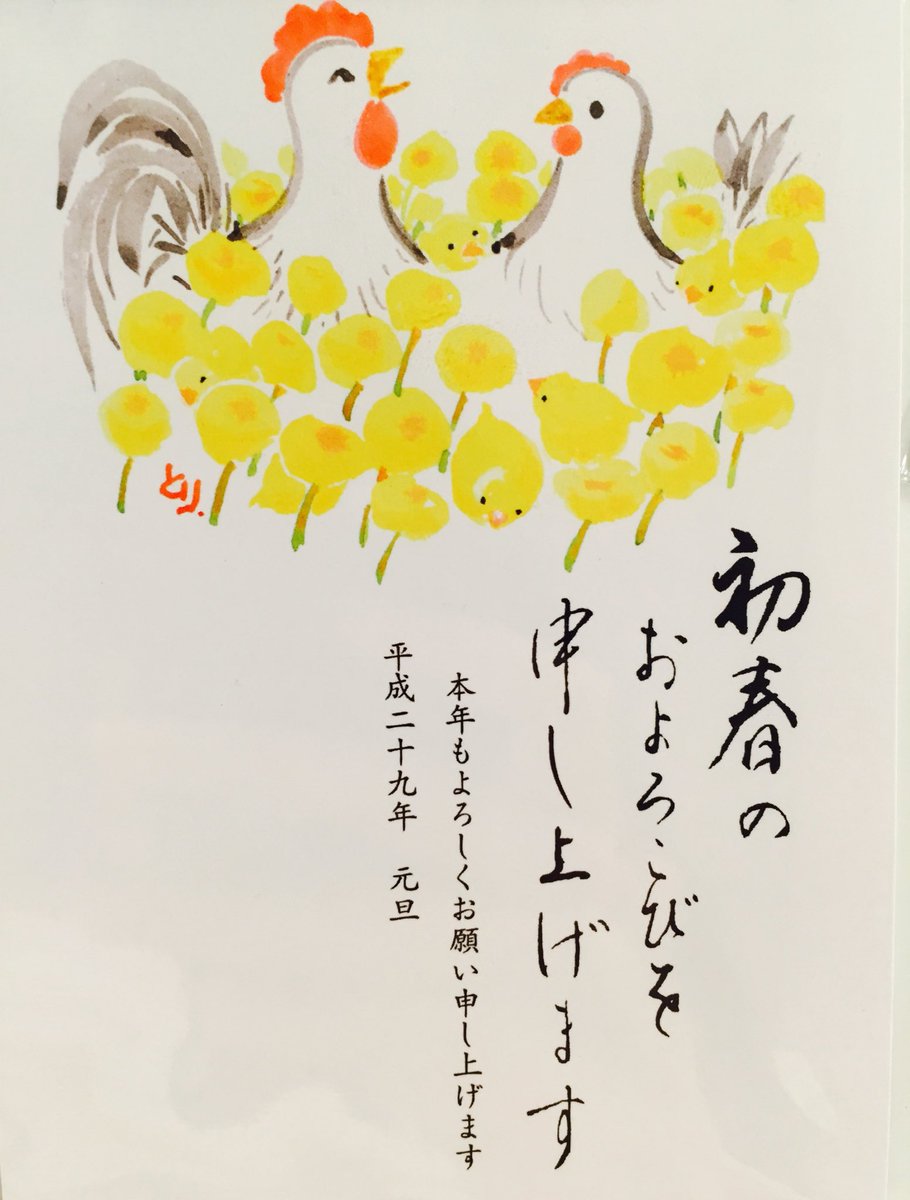 初春の
およろこびを
申し上げます
本年もよろしくお願い申し上げます
平成二十九年 元旦
とり.